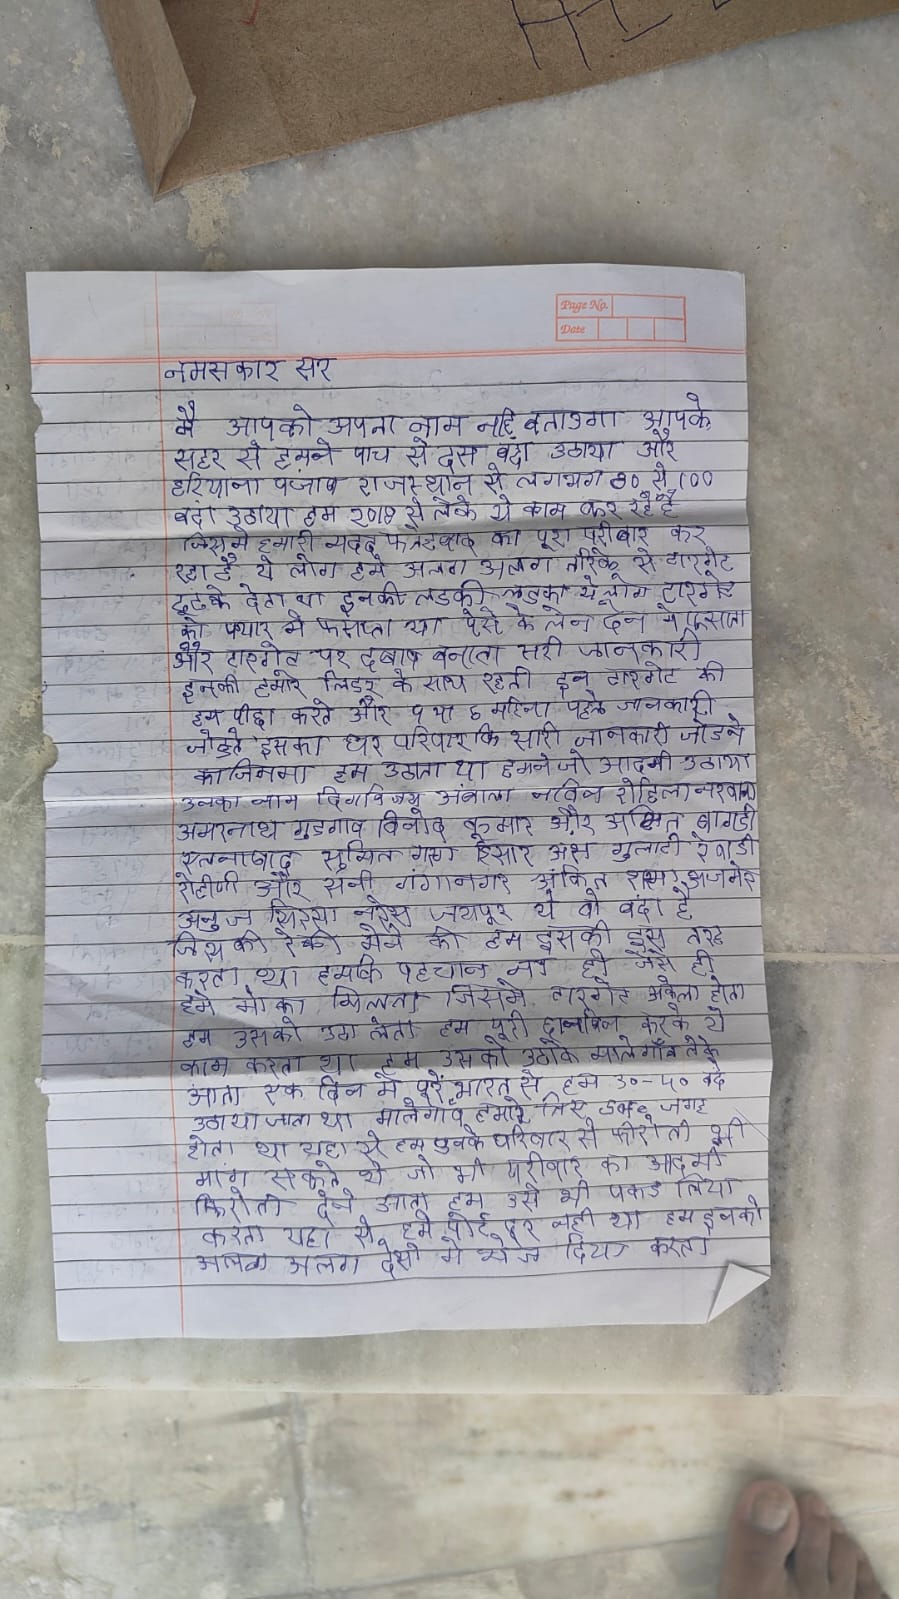 HI
Page No.
Date
नमसकार सर
मै आपको अपना नाम नहि बताउगा आपके
सहर से हमने पाच से दस बंदा उठाया और
हरियाना पंजाब राजस्थान से लगभग 80 से 100
बंदा उठाया हम 2018 से लेके ये काम कर रहे है
जिसमे हमारी मदद फतेहबाद का पूरा परीबार कर
रहा है ये लोग हमे अलग अलग तरिके से टारगेट
ढूढके देता था इनकी लडकी लडका ये लोग टारगेट
को पयार मे फसाता या पेसे के लेन देन मे फसाता
और टारगेट पर दबाब बनाता सारी जानकारी
इनकी हमारे लिडर के साथ रहती इन टारगेट की
हम पीछा करते और 5 या 6 महिना पहले जानकारी
जोडते इसका घर परिवार कि सारी जानकारी जोडने
का जिनमा हम उठाता था हमने जो आदमी उठाया
उनका नाम दिगविजय अंबाला नविन रोहिला नरवाना
अमरनाथ गुडगाव विनोद कुमार और अमित बागडी
रतनाबाद सुमित हिसार अंश गुलाटी रेवाडी
रोहीणी और सनी गंगानगर अंकित शरमा अजमेर
अनुज सिरसा नरेस जयपूर ये वो बंदा है
जिसकी रेकी मेने की हम इसकी इस तरह
करता था हमकि पहचान ना हो जेसे ही
हमे मोका मिलता जिसमे टारगेट अकेला होता
हम उसको उठा लेता हम पूरी छानबिन करके ये
काम करता था हम उसको उठाके मालेगाँव लेके
आता एक दिन मे पूरे भारत से हम 30-40 बंदे
उठाया जाता था मालेगाँव हमारे लिए safe जगह
होता था यहा से हम इनके परिवार से फीरोती भी
मांग सकते थे जो भी परीवार का आदमी
फिरोती देने आता हम उसे भी पकड लिया
करता यहा से हमे कोई डर नही था हम इनको
अलग अलग देशो मे भेज दिया करता